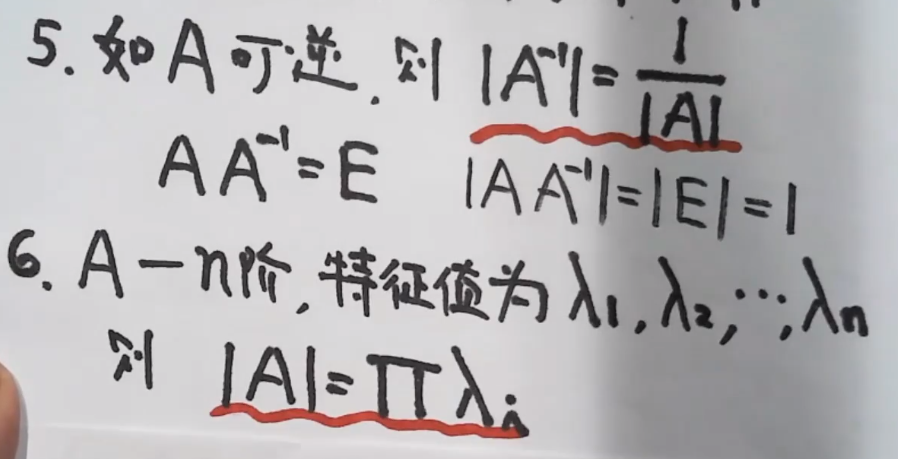 5. 如A可逆, 则 |A⁻¹| = 1/|A|
AA⁻¹=E |AA⁻¹|=|E|=1
6. A—n阶, 特征值为 λ₁, λ₂, ⋯, λₙ
则 |A|=∏λᵢ